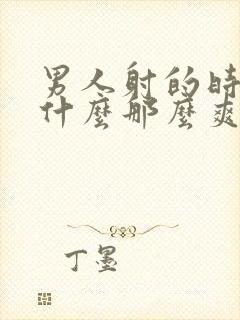 男人射的時
什麼那麼爽
丁墨